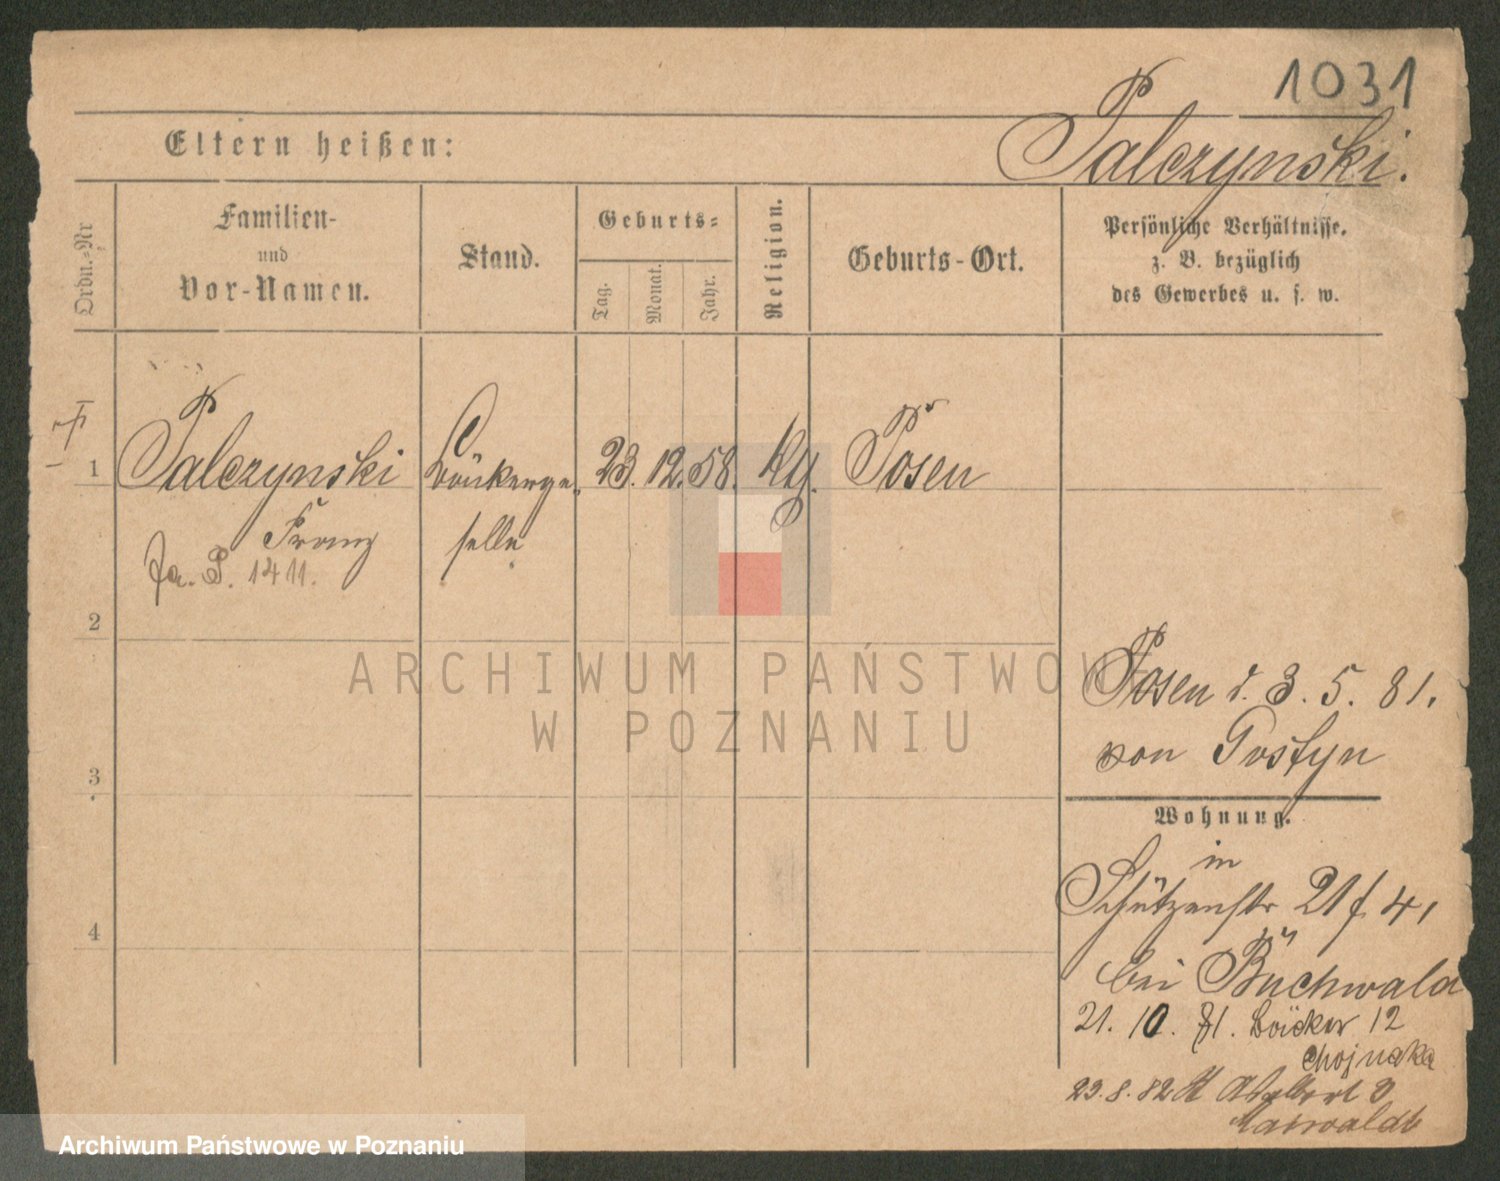 1031
Palczynski.
Eltern heißen:
Ordn.-Nr
Familien-
und
Vor-Namen.
Stand.
Geburts-
Tag.
Monat.
Jahr.
Religion.
Geburts-Ort.
Persönliche Verhältnisse.
z. B. bezüglich
des Gewerbes u. s. w.
1 Palczynski 23. 12. 58. Posen
Franz selle
1411.
2
Posen d. 3. 5. 81.
von Gostyn
3
Wohnung.
in
Schützenstr 21
4
bei Buchwald
21. 10. 81. Bäcker 12
Chojnaka
23. 8. 82
ARCHIWUM PAŃSTWOWE
W POZNANIU
Archiwum Państwowe w Poznaniu